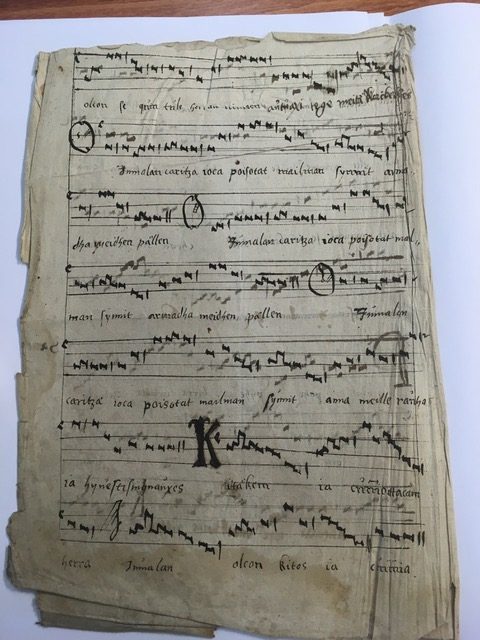 olcon se tule herran autuaxi tege meitä
Jumalan caritza ioca poisotat mailman synnit arma
dha meidhen pällen, Jumalan caritza ioca poisotat mail,
man synnit armadha meidhen pællen Jumalan
caritzæ ioca poisotat mailman synnit anna meille rauha
ia Kitækem ia
herra Jumalan olcon kitos ia cunnia.